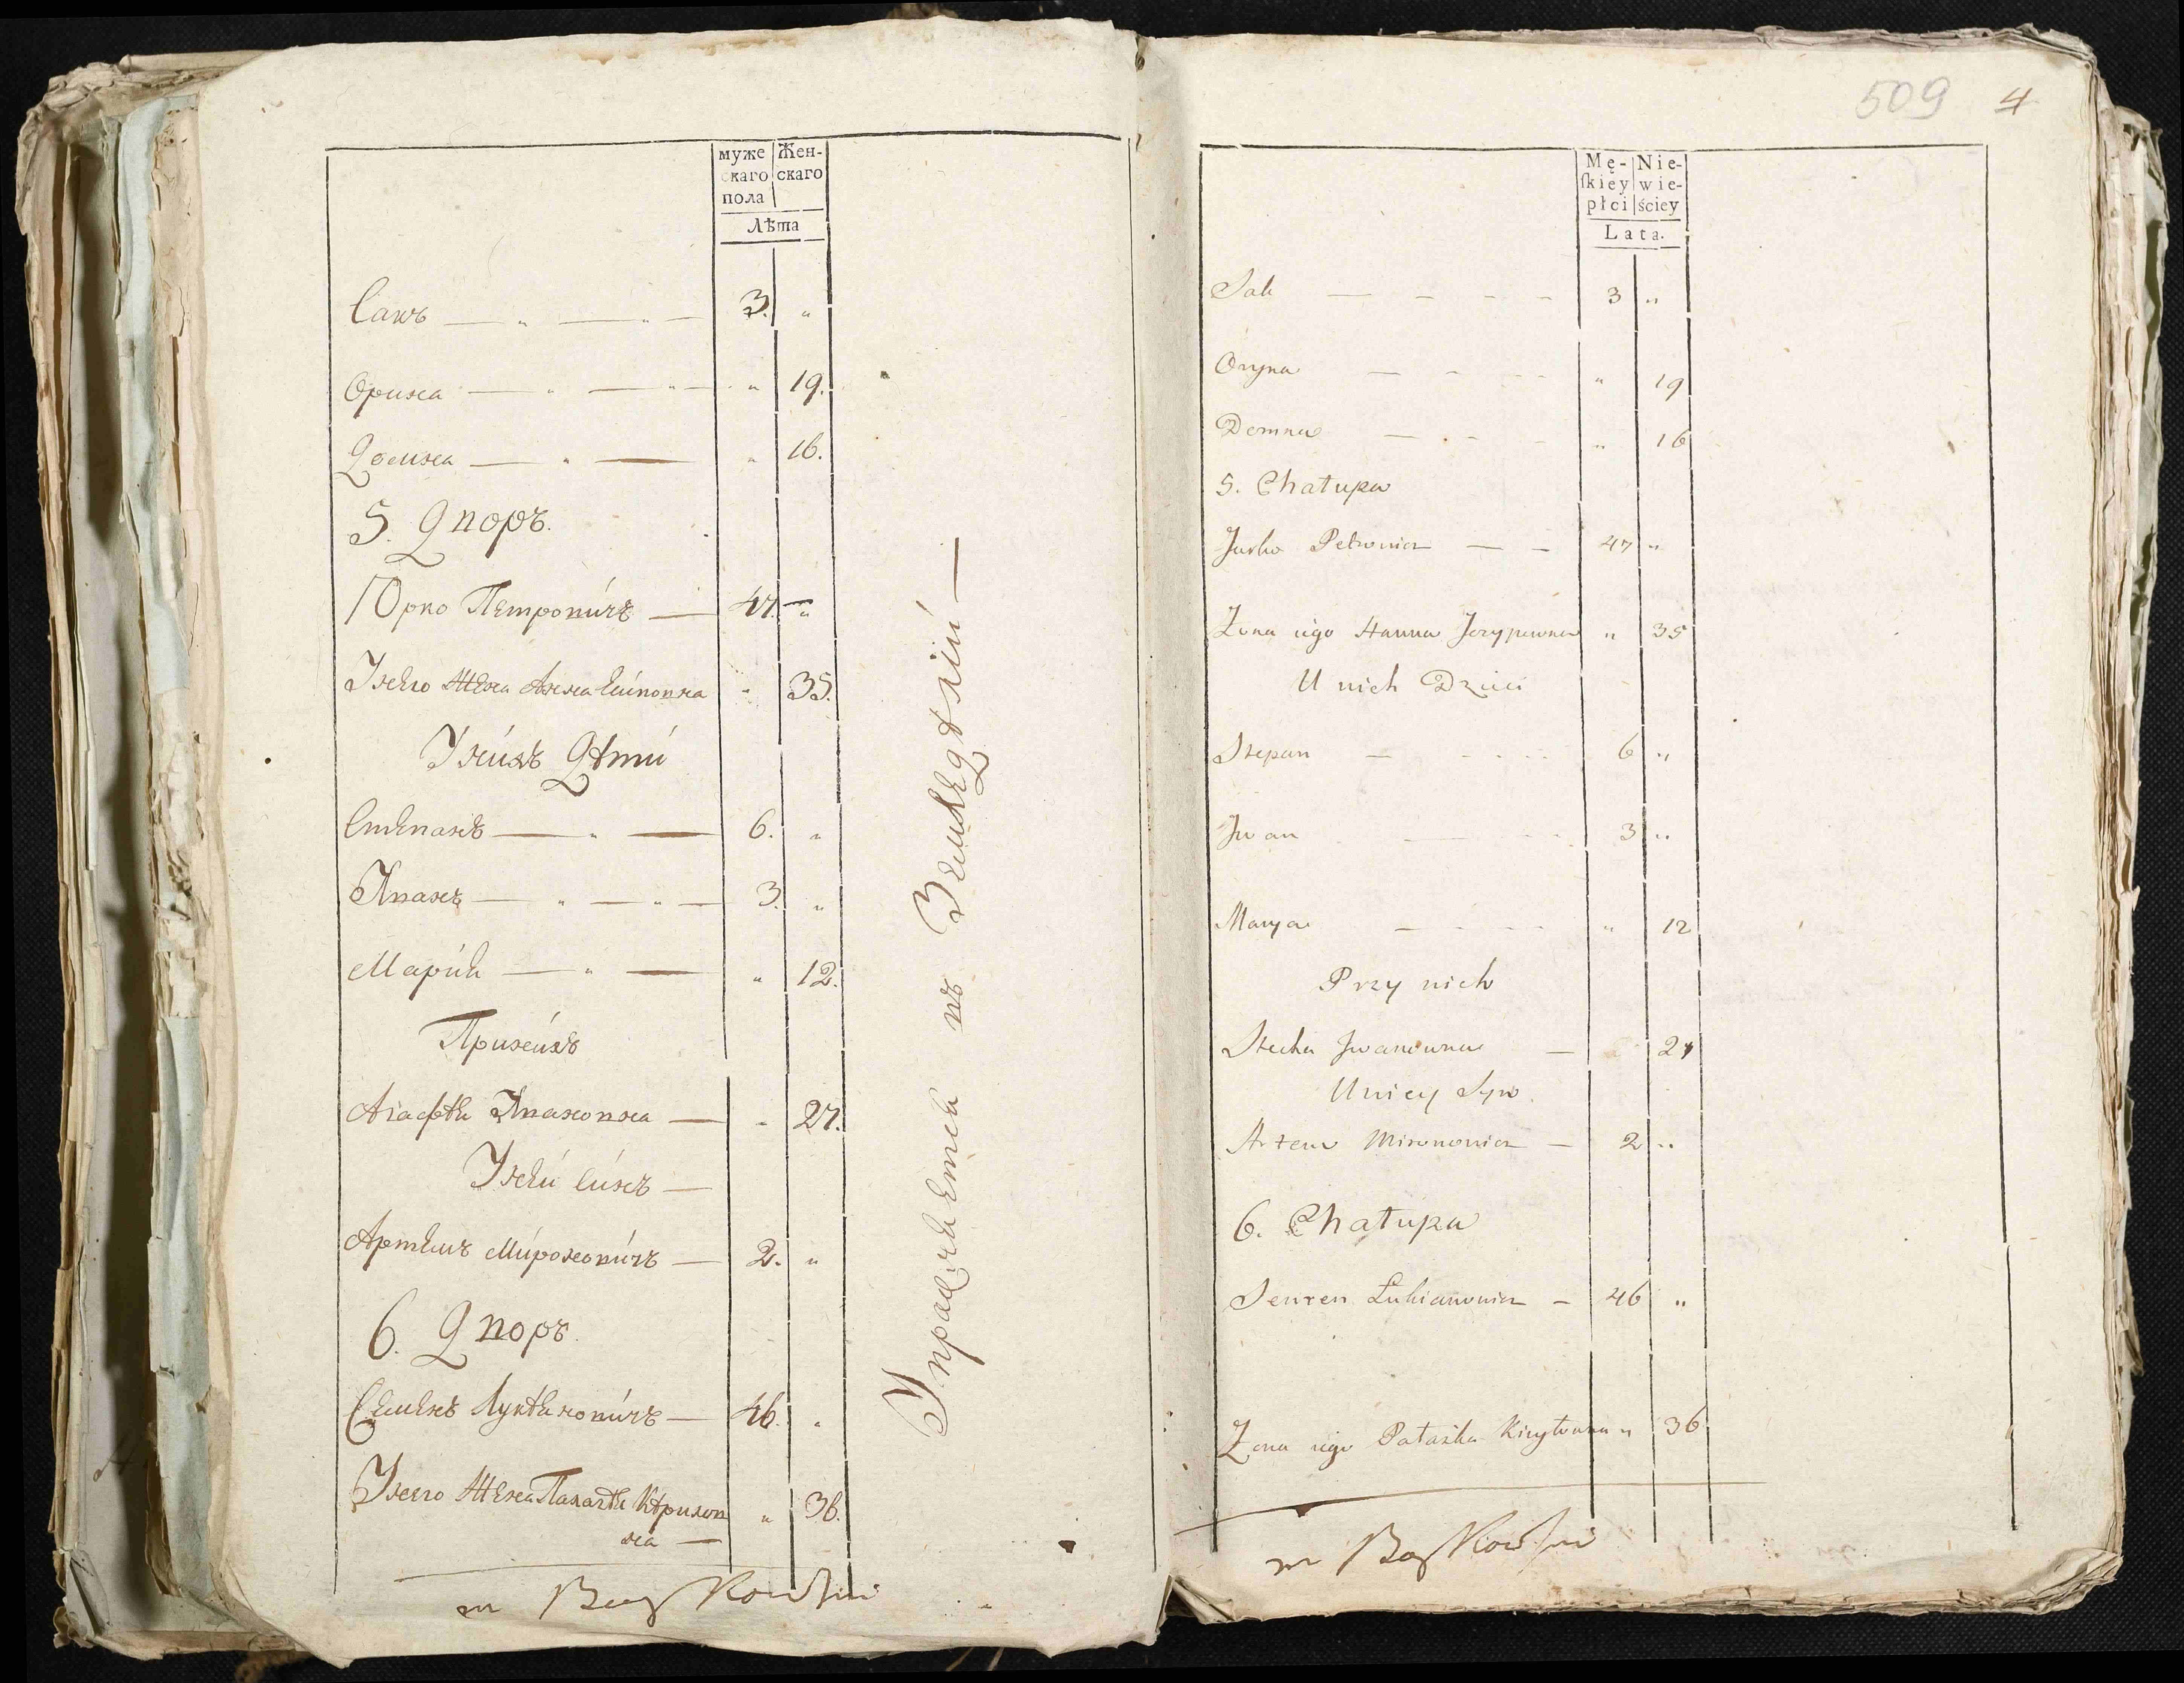 муже
скаго
пола
Жен-
скаго
Лѣта
Сакъ — „ — „ — 3. „
Орина — „ — „ — „ 19.
Домна — „ — „ 16.
5. Дворъ.
Юрко Петровичъ — 47. — „
У него Жена Анна
„ 35.
У нихъ Дѣти
Степанъ — „ — 6. „
Иванъ — „ — „ — 3. „
Марія — „ — „ 12.
При нихъ
Агафѣя Ивановна — „ 27.
У неи Синъ —
Артемъ Мироновичъ — 2. „
6. Дворъ.
Семенъ Лукѣяновичъ — 46. „
У него Жена Палагѣя Кѣрилов
на — „ 36.
Упражняется въ Земледѣліи —
509 4
Mę-
skiey
płci
Nie-
wie-
ściey
Lata.
Sak — - - - 3 „
Oryna — - - - „ 19
Domna — - - - „ 16
5. Chałupa
Jurko Petrowicz — - 47 „
Żona iego Hanna
„ 35
U nich Dzieci
Stepan — - - - 6 „
Jwan — - - 3 „
Marya — - - - „ 12
Przy nich
Iwanowna — 27
U niey Syn.
Artem Mironowicz — 2 „
6. Chałupa
Semen Łukianowicz - 46 „
Żona iego Pałaśka Kiryłowna „ 36